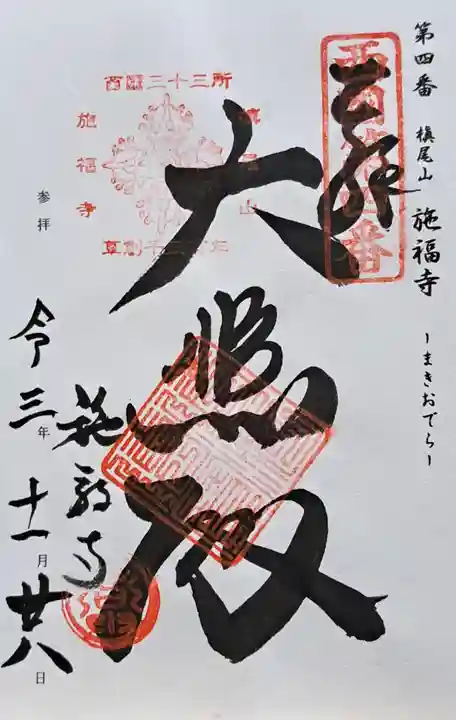 第四番 槇尾山 施福寺 ーまきおでらー
西国第四番
奉拝
大悲殿
西國三十三所
施福寺
草創千三百年
施福寺
参拝
令三年十一月廿八日